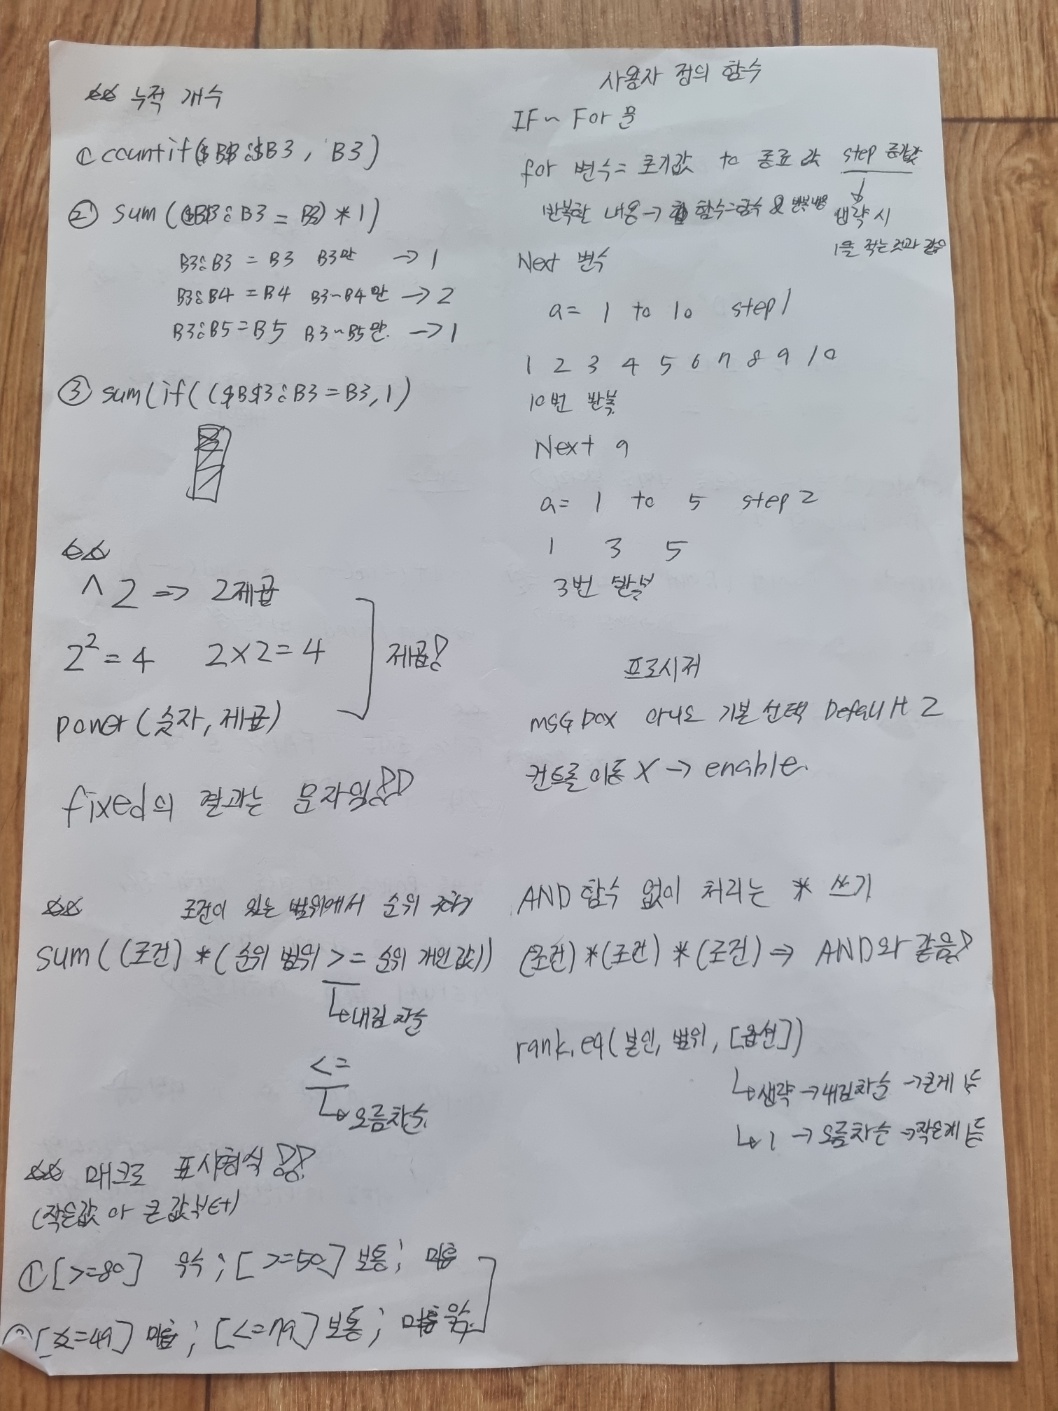 ☆☆ 누적 개수
① countif($B$3:$B3, B3)
② sum(($B$3:B3 = B3)*1)
B3:B3 = B3 B3만 → 1
B3:B4 = B4 B3~B4만 → 2
B3:B5 = B5 B3~B5만. → 1
③ sum(if(($B$3:B3 = B3, 1)
☆☆
^2 => 2제곱
2² = 4 2×2 = 4
제곱!
power(숫자, 제곱)
fixed의 결과는 문자임!!
☆☆ 조건이 있는 범위에서 순위 구하기
sum((조건)*(순위 범위 >= 순위 개인값))
↳ 내림차순
<=
↳ 오름차순
☆☆ 매크로 표시형식!!
(작은값 or 큰값부터)
① [>=80] 우수; [>=50] 보통; 미흡
② [<=49] 미흡; [<=79] 보통; 우수
사용자 정의 함수
IF ~ For 문
for 변수 = 초기값 to 종료값 step 증감값
반복할 내용 → 함수=함수 & 반복내용
생략 시
1을 적는것과 같음
Next 변수
a = 1 to 10 step 1
1 2 3 4 5 6 7 8 9 10
10번 반복
Next a
a = 1 to 5 step 2
1 3 5
3번 반복
프로시저
msgbox 아니오 기본 선택 Default 2
컨트롤 이동 X → enable.
AND 함수 없이 처리는 * 쓰기
(조건)*(조건)*(조건) ⇒ AND와 같음!
rank.eq(본인, 범위, [옵션])
↳ 생략 → 내림차순 → 큰게 1등
↳ 1 → 오름차순 → 작은게 1등